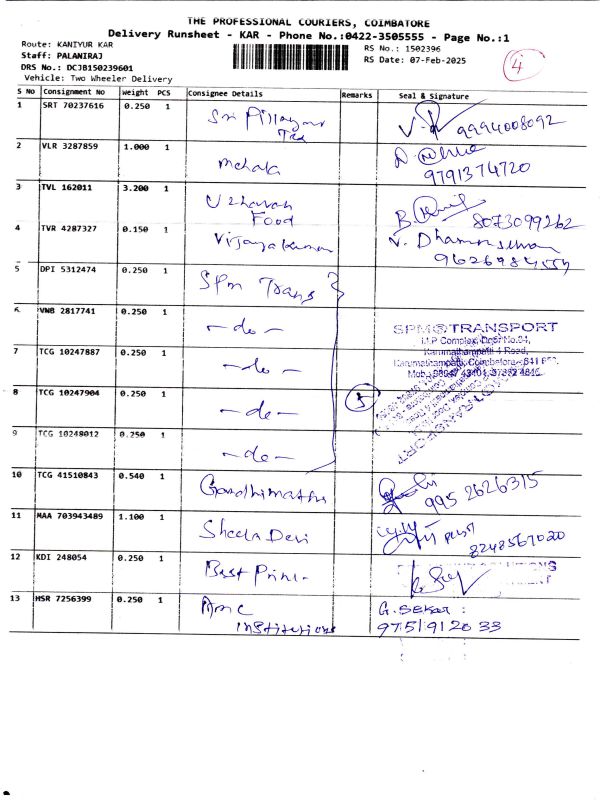 THE PROFESSIONAL COURIERS, COIMBATORE
Delivery Runsheet - KAR - Phone No.:0422-3505555 - Page No.:1
Route: KANIYUR KAR
RS No.: 1502396
Staff: PALANIRAJ
RS Date: 07-Feb-2025
DRS No.: DCJB150239601
Vehicle: Two Wheeler Delivery
4
S No Consignment No Weight PCS Consignee Details Remarks Seal & Signature
1 SRT 70237616 0.250 1 Sri Pillayar Tex 9994008092
2 VLR 3287859 1.000 1 Mehala 9791374720
3 TVL 162011 3.200 1 Uzhavan Food 8073099262
4 TVR 4287327 0.150 1 Vijayakumar V. Dhamu
5 DPI 5312474 0.250 1 SPM Trans
6 VNB 2817741 0.250 1 -do-
SPM TRANSPORT
Complex, Door No.
Karumathampatti 4 Road,
Karumathampatti, Coimbatore - 641
7 TCG 10247887 0.250 1 -do-
8 TCG 10247904 0.250 1 -do- 5
9 TCG 10248012 0.250 1 -do-
10 TCG 41510843 0.540 1 Gandhimathi 995 2626315
11 MAA 703943489 1.100 1 Sheela Devi 8248567020
12 KDI 248054 0.250 1 Best Print
13 HSR 7256399 0.250 1 AMC Institutions G. Sekar : 9751912033